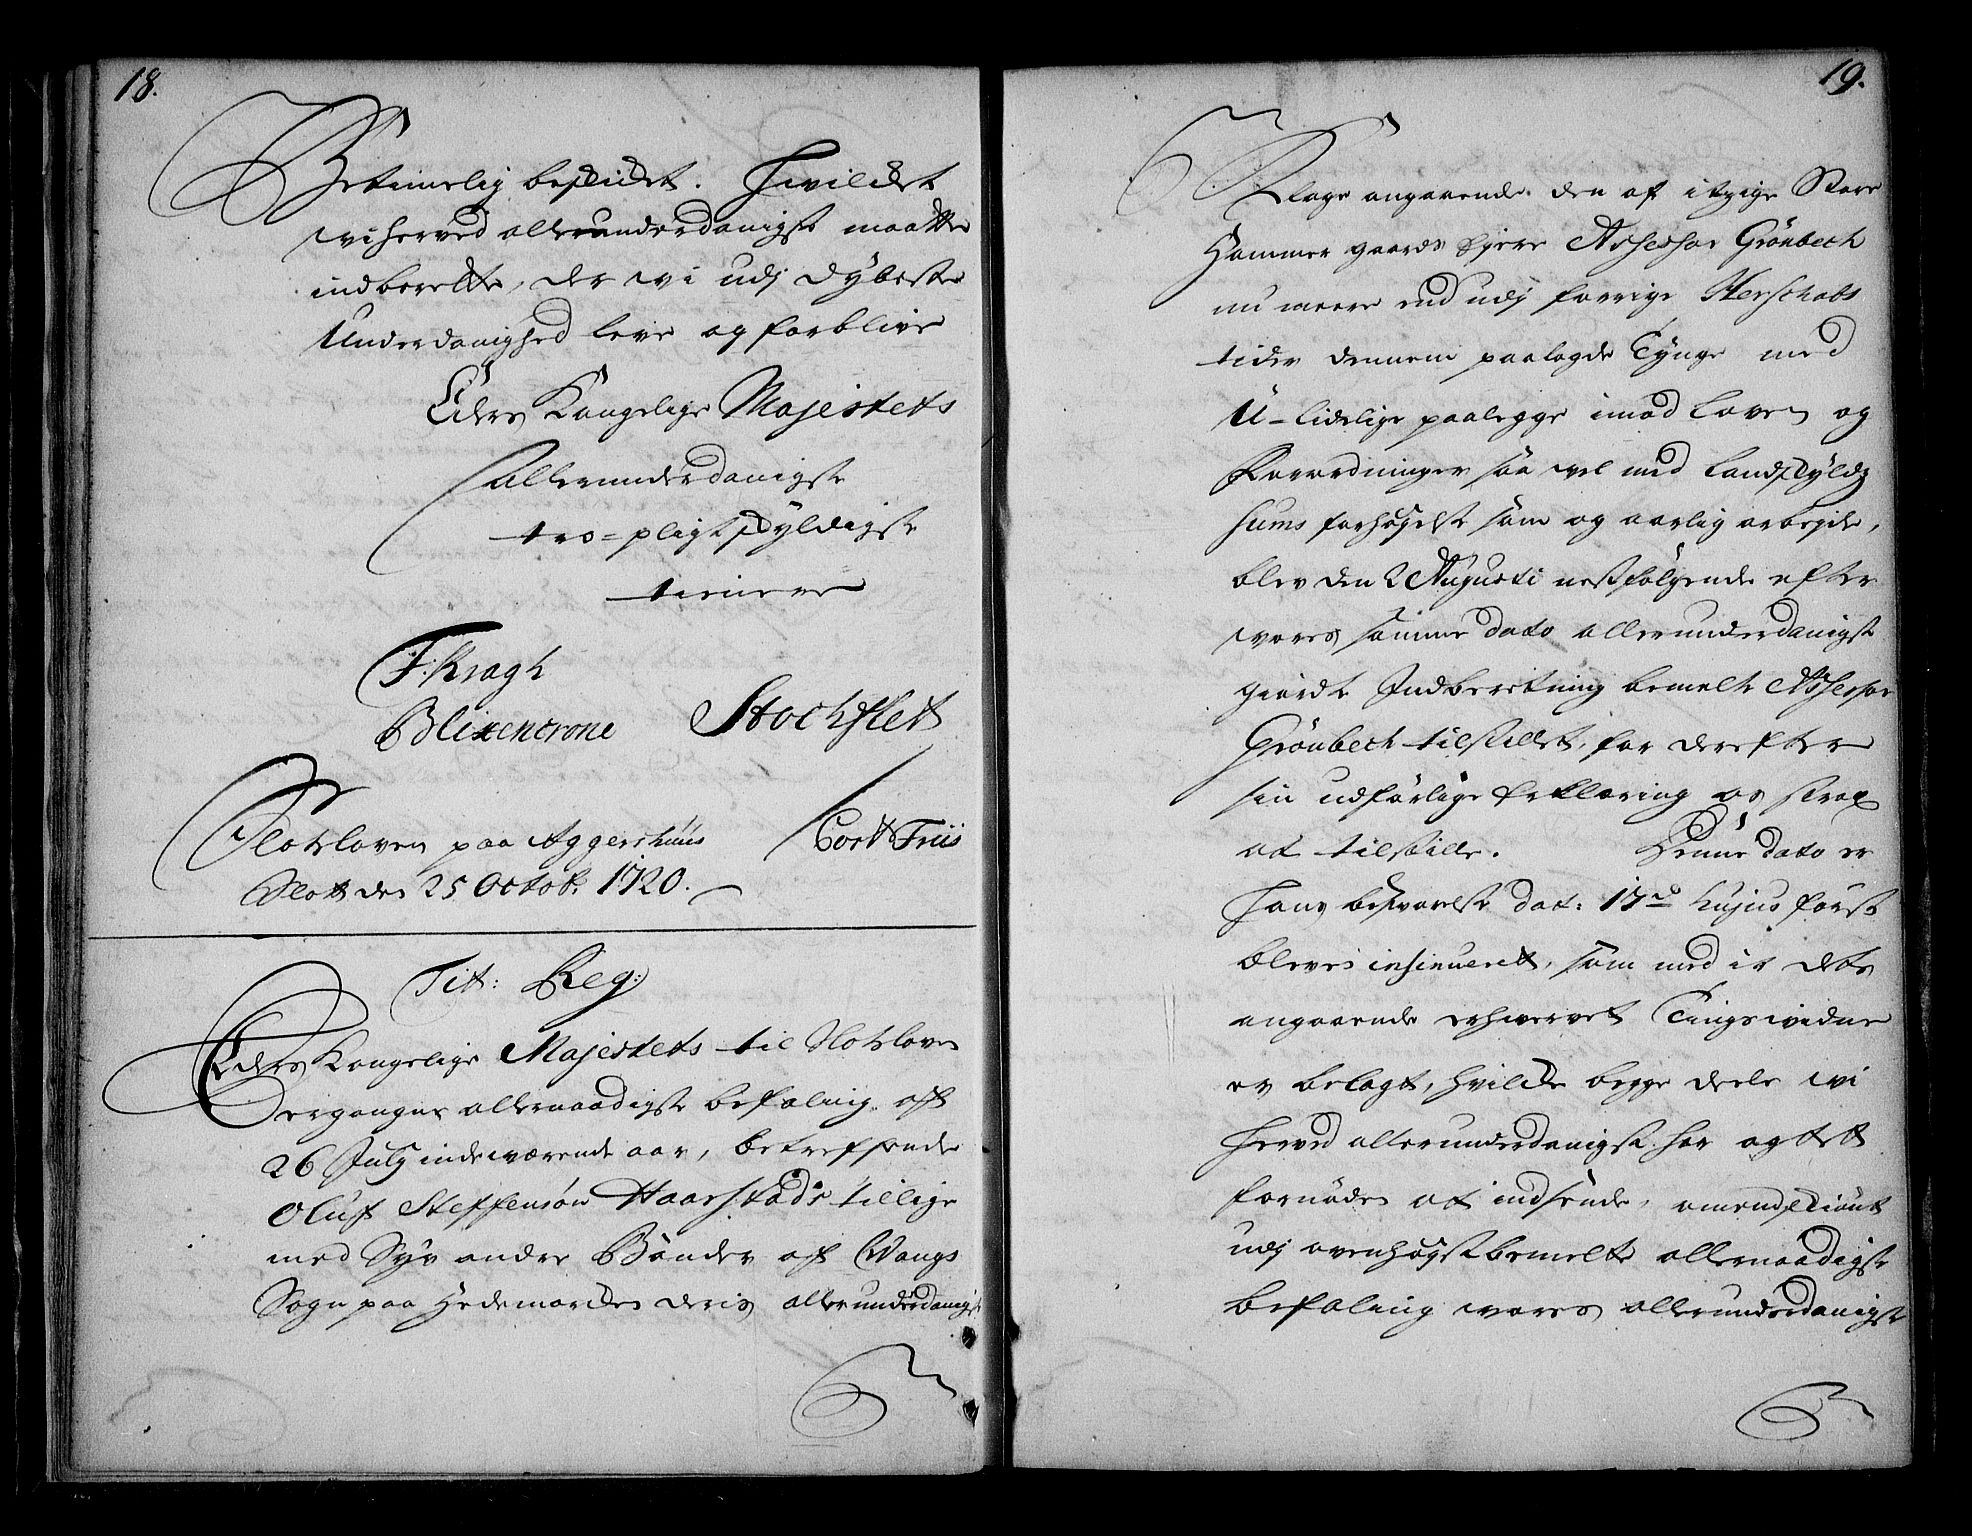 18.
Betimelig beskicket. Hvilcket
wi herved allerunderdanigst maatte
indberette, der wi udj dybeste
Underdanighed leve og forblive
Eders Kongelige Majestets
allerunderdanigste
troe-pligtskyldigste
tienere
F: Kragh
Blixencrone Stochflet
Slotzloven paa Aggershuus Cort Friis
Slott den 25 Octob: 1720.
Tit: Reg:
Eders Kongelige Majestets til Slotzloven
ergangne allernaadigste befaling af
26 July indeværende aar, betreffende
Oluf Steffensøn Haarstads tillige
med Syv andre Bønder af Wangs
Sogn paa Hedemarcken deris allerunderdanigst
19.
Klage angaaende den af itzige Store
Hammer gaards Ejere Assessor Grönbech
nu meere end udj forrige Herschabs
tider dennem paalagde Tynge med
U-lidelige paalegge imod Loven og
Forordninger saa vel med Landskyldz
Sums forhøgelse som og aarlig arbejde,
blev den 2 Augusti nestfølgende efter
wores samme dato allerunderdanigst
giorde Indberetning bemelte Assessor
Grönbech tilstillet, for derefter
sin udførlige Erklæring os strax
at tilstille. Denne dato er
hans besvarelse dat: 17de hujus først
bleven insinueret, som med it dets
angaaende erhvervet Tingswidne
er belagt, hvilcke begge deele wi
herved allerunderdanigst har agtet
fornøden at indsende, omendskiønt
udj ovenhøgstbemelte allernaadigste
befaling wores allerunderdanigste